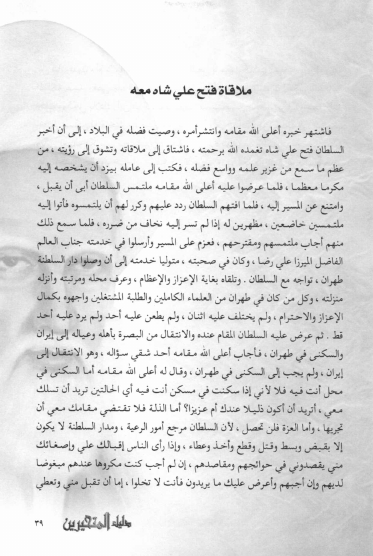 ملاقاة فتح علي شاه معه
فاشتهر خبره أعلى الله مقامه وانتشر أمره ، وصيت فضله في البلاد ، إلى أن أخبر
السلطان فتح علي شاه تغمده الله برحمته ، فاشتاق إلى ملاقاته وتشوق إلى رؤيته ، من
عظم ما سمع من غزير علمه وواسع فضله ، فكتب إلى عامله بيزد أن يشخصه إليه
مكرما معظما ، فلما عرضوا عليه أعلى الله مقامه ملتمس السلطان أبى أن يقبل ،
وامتنع عن المسير إليه ، فلما افتهم السلطان ردد عليهم وكرر لهم أن يلتمسوه فأتوا إليه
ملتمسين خاضعين ، مظهرين له إذا لم تسر إليه نخاف من ضرره ، فلما سمع ذلك
منهم أجاب ملتمسهم ومقترحهم ، فعزم على المسير وأرسلوا في خدمته جناب العالم
الفاضل الميرزا علي رضا ، وكان في صحبته ، متوليا خدمته إلى أن وصلوا دار السلطنة
طهران ، تواجه مع السلطان . وتلقاه بغاية الإعزاز والإعظام ، وعرف محله ومرتبته وأنزله
منزلته ، وكل من كان في طهران من العلماء الكاملين والطلبة المشتغلين واجهوه بكمال
الإعزاز والاحترام ، ولم يختلف عليه اثنان ، ولم يطعن عليه أحد ولم يرد عليه أحد
قط . ثم عرض عليه السلطان المقام عنده والانتقال من البصرة بأهله وعياله إلى إيران
والسكنى في طهران ، فأجاب أعلى الله مقامه أحد شقي سؤاله ، وهو الانتقال إلى
إيران ، ولم يجب إلى السكنى في طهران ، وقال له أعلى الله مقامه أما السكنى في
محل أنت فيه فلا لأني إذا سكنت في مسكن أنت فيه أي الحالتين تريد أن تسلك
معي ، أتريد أن أكون ذليلا عندك أم عزيزا؟ أما الذلة فلا تقتضي مقامك معي أن
تجريها ، وأما العزة فلن تحصل ، لأن السلطان مرجع أمور الرعية ، ومدار السلطنة لا يكون
إلا بقبض وبسط وقتل وقطع وأخذ وعطاء ، وإذا رأى الناس إقبالك علي وإصغائك
مني يقصدوني في حوائجهم ومقاصدهم ، إن لم أجب كنت مكروها عندهم مبغوضا
لديهم وإن أجبهم وأعرض عليك ما يريدون فأنت لا تخلوا ، إما أن تقبل مني وتعطي
دليل المتحيرين
٣٩